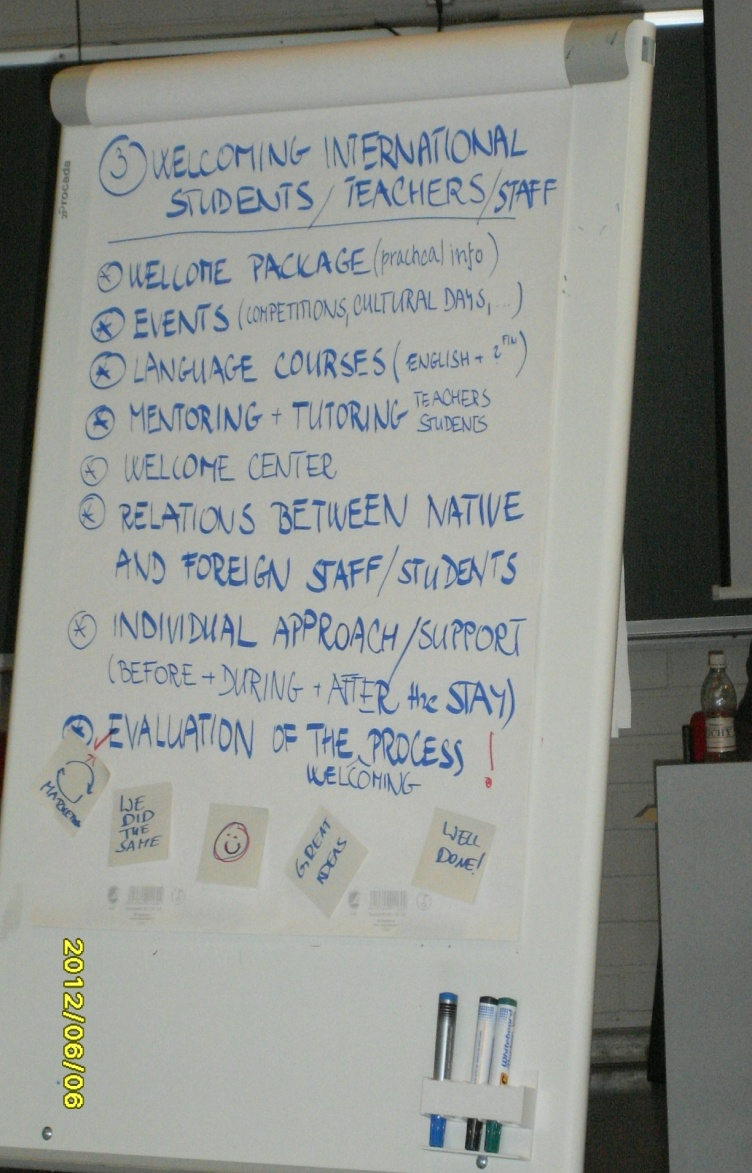 3 WELCOMING INTERNATIONAL
STUDENTS / TEACHERS / STAFF
WELCOME PACKAGE (practical info)
EVENTS (COMPETITIONS, CULTURAL DAYS, ...)
LANGUAGE COURSES (ENGLISH + ? FIN)
MENTORING + TUTORING TEACHERS
STUDENTS
WELCOME CENTER
RELATIONS BETWEEN NATIVE
AND FOREIGN STAFF/STUDENTS
INDIVIDUAL APPROACH/SUPPORT
(BEFORE + DURING + AFTER the STAY)
EVALUATION OF THE PROCESS !
WELCOMING
WE
DID
THE
SAME
GREAT
IDEAS
WELL
DONE!
2012/06/06
Procada
Whiteboard